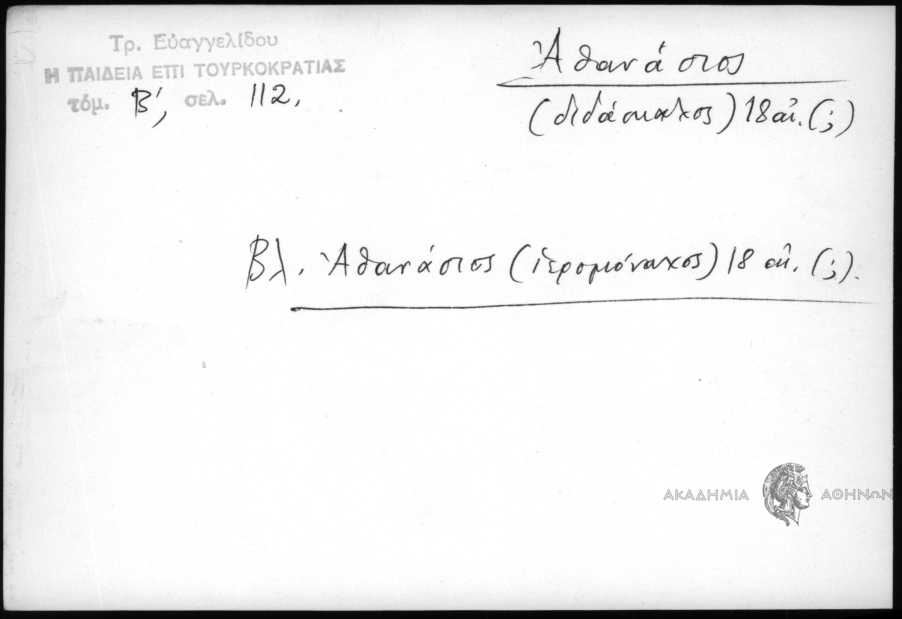 Τρ. Εὐαγγελίδου
Η ΠΑΙΔΕΙΑ ΕΠΙ ΤΟΥΡΚΟΚΡΑΤΙΑΣ
τόμ. Β', σελ. 112.
Ἀθανάσιος
(διδάσκαλος) 18 αἰ. (;)
Βλ. Ἀθανάσιος (ἱερομόναχος) 18 αἰ. (;).
ΑΚΑΔΗΜΙΑ ΑΘΗΝΩΝ